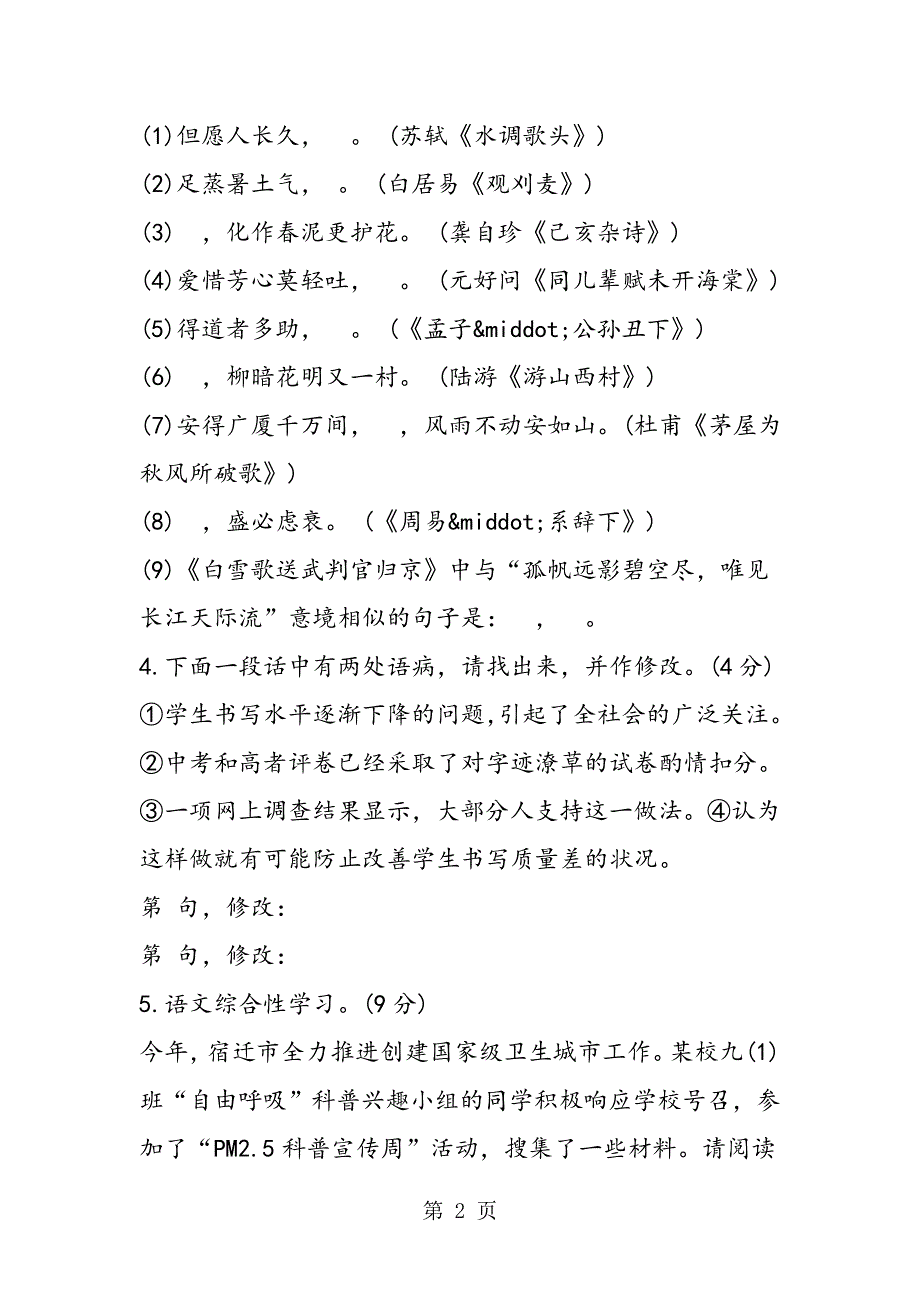 (1)但愿人长久， 。 (苏轼《水调歌头》)
(2)足蒸暑土气， 。 (白居易《观刈麦》)
(3) ，化作春泥更护花。 (龚自珍《己亥杂诗》)
(4)爱惜芳心莫轻吐， 。 (元好问《同儿辈赋未开海棠》)
(5)得道者多助， 。 (《孟子&middot;公孙丑下》)
(6) ，柳暗花明又一村。 (陆游《游山西村》)
(7)安得广厦千万间， ，风雨不动安如山。(杜甫《茅屋为
秋风所破歌》)
(8) ，盛必虑衰。 (《周易&middot;系辞下》)
(9)《白雪歌送武判官归京》中与“孤帆远影碧空尽，唯见
长江天际流”意境相似的句子是： ， 。
4.下面一段话中有两处语病，请找出来，并作修改。(4分)
①学生书写水平逐渐下降的问题,引起了全社会的广泛关注。
②中考和高者评卷已经采取了对字迹潦草的试卷酌情扣分。
③一项网上调查结果显示，大部分人支持这一做法。④认为
这样做就有可能防止改善学生书写质量差的状况。
第 句，修改：
第 句，修改：
5.语文综合性学习。(9分)
今年，宿迁市全力推进创建国家级卫生城市工作。某校九(1)
班“自由呼吸”科普兴趣小组的同学积极响应学校号召，参
加了“PM2.5科普宣传周”活动，搜集了一些材料。请阅读
第 2 页